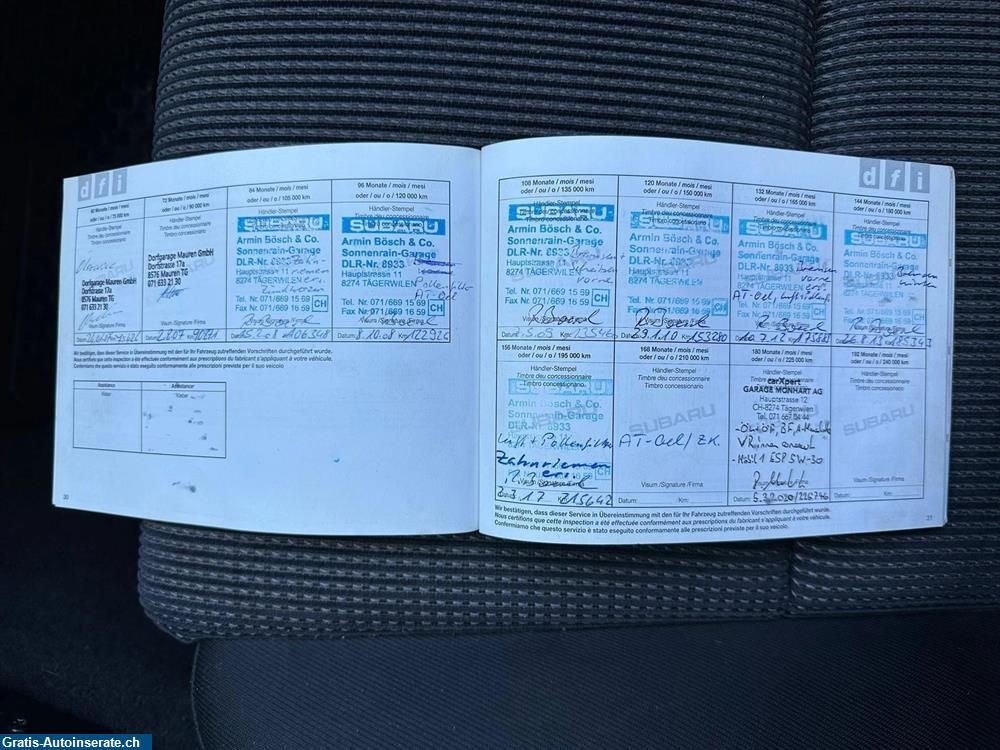 dfi
60 Monate / mois / mesi
oder / ou / o / 75 000 km
Händler-Stempel
Timbre du concessionnaire
Timbro concessionario
Dorfgarage Mauren GmbH
Dorfstrasse 17a
8576 Mauren TG
071 633 21 30
Visum /Signature /Firma
Datum:
72 Monate / mois / mesi
oder / ou / o / 90 000 km
Händler-Stempel
Timbre du concessionnaire
Timbro concessionario
Dorfgarage Mauren GmbH
Dorfstrasse 17a
8576 Mauren TG
071 633 21 30
Visum /Signature /Firma
84 Monate / mois / mesi
oder / ou / o / 105 000 km
Händler-Stempel
Timbre du concessionnaire
SUBARU
Armin Bösch & Co.
Sonnenrain-Garage
DLR-Nr. 8933
Hauptstrasse 11
8274 TÄGERWILEN
Tel. Nr. 071/669 15 69
Fax Nr. 071/669 16 59
CH
106348
96 Monate / mois / mesi
oder / ou / o / 120 000 km
Händler-Stempel
Timbre du concessionnaire
SUBARU
Armin Bösch & Co.
Sonnenrain-Garage
DLR-Nr. 8933
Hauptstrasse 11
8274 TÄGERWILEN
Pollenfilter
AT-Oel
Tel. Nr. 071/669 15 69
Fax Nr. 071/669 16 59
CH
Datum: 8.10.08 Km: 122926
Wir bestätigen, dass dieser Service in Übereinstimmung mit den für Ihr Fahrzeug zutreffenden Vorschriften durchgeführt wurde.
Nous certifions que cette inspection a été effectuée conformément aux prescriptions du fabricant s'appliquant à votre véhicule.
Confermiamo che questo servizio è stato eseguito conformamente alle prescrizioni previste per il suo veicolo.
Assistance
Kleber
Assistance
Kleber
30
dfi
108 Monate / mois / mesi
oder / ou / o / 135 000 km
Händler-Stempel
Timbre du concessionnaire
Timbro concessionario
SUBARU
Armin Bösch & Co.
Sonnenrain-Garage
DLR-Nr. 8933
Hauptstrasse 11
8274 TÄGERWILEN
vorne
Tel. Nr. 071/669 15 69
Fax Nr. 071/669 16 59
CH
120 Monate / mois / mesi
oder / ou / o / 150 000 km
Händler-Stempel
Timbre du concessionnaire
Timbro concessionario
SUBARU
Armin Bösch & Co.
Sonnenrain-Garage
DLR-Nr. 8933
Hauptstrasse 11
8274 TÄGERWILEN
Tel. Nr. 071/669 15 69
Fax Nr. 071/669 16 59
CH
153280
132 Monate / mois / mesi
oder / ou / o / 165 000 km
Händler-Stempel
Timbre du concessionnaire
Timbro concessionario
SUBARU
Armin Bösch & Co.
Sonnenrain-Garage
Bremsen
vorne
AT-Oel, Luftfilter
10.7.12
144 Monate / mois / mesi
oder / ou / o / 180 000 km
Händler-Stempel
Timbre du concessionnaire
SUBARU
Armin Bösch & Co.
Sonnenrain-Garage
Bremsen
hinten
Tel. Nr. 071/669 15 69
Fax Nr. 071/669 16 59
26.8.13 185343
156 Monate / mois / mesi
oder / ou / o / 195 000 km
Händler-Stempel
Timbre du concessionnaire
Timbro concessionario
SUBARU
Armin Bösch & Co.
Sonnenrain-Garage
DLR-Nr. 8933
Luft + Pollenfilter
Zahnriemen
2.3.17 215642
168 Monate / mois / mesi
oder / ou / o / 210 000 km
Händler-Stempel
Timbre du concessionnaire
Timbro concessionario
SUBARU
AT-Oel/ZK.
Visum /Signature /Firma
Datum: Km:
180 Monate / mois / mesi
oder / ou / o / 225 000 km
Händler-Stempel
carXpert
GARAGE MONHART AG
Hauptstrasse 12
CH-8274 Tägerwilen
Tel. 071 667 04 44
- Mobil 1 ESP 5W-30
5.3.2020/226746
192 Monate / mois / mesi
oder / ou / o / 240 000 km
Händler-Stempel
Timbre du concessionnaire
Timbro concessionario
SUBARU
Visum /Signature /Firma
Datum: Km:
Wir bestätigen, dass dieser Service in Übereinstimmung mit den für Ihr Fahrzeug zutreffenden Vorschriften durchgeführt wurde.
Nous certifions que cette inspection a été effectuée conformément aux prescriptions du fabricant s'appliquant à votre véhicule.
Confermiamo che questo servizio è stato eseguito conformamente alle prescrizioni previste per il suo veicolo.
31
Gratis-Autoinserate.ch